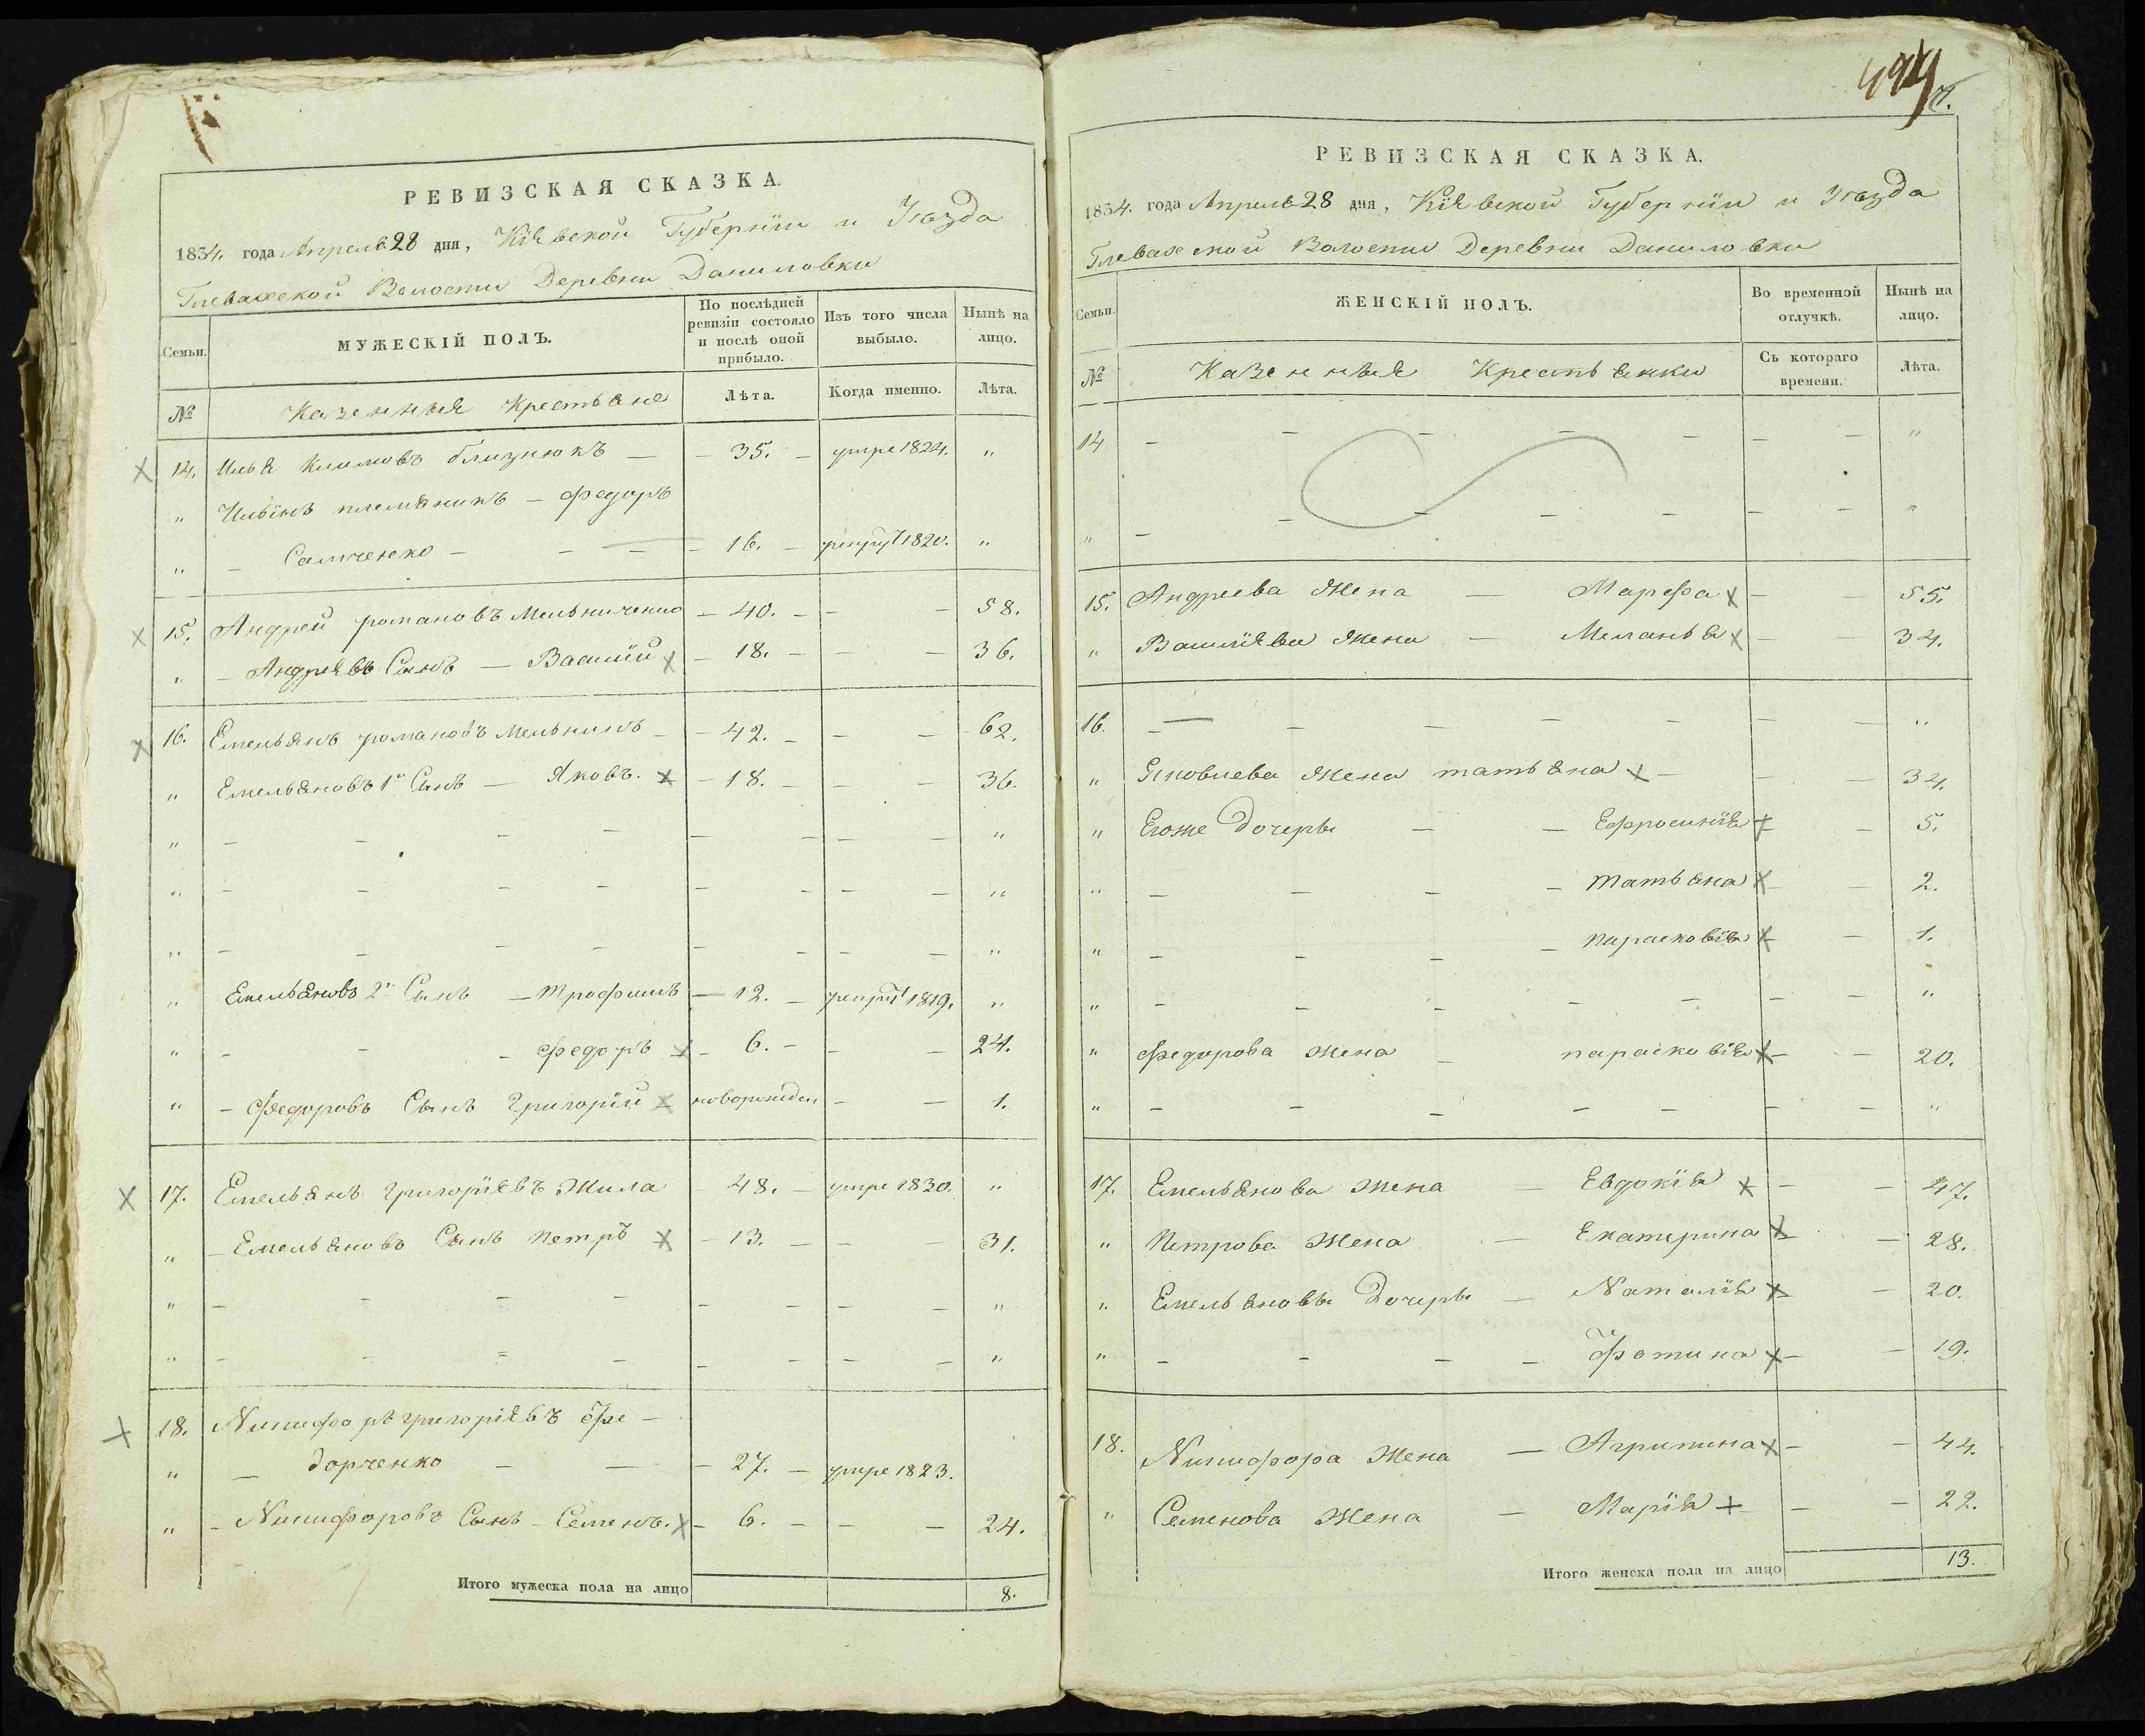 РЕВИЗСКАЯ СКАЗКА.
1834. года Апреля 28 дня, Кіевской Губерніи и Уезда
Глевахской Волости Деревни Даниловки
Семьи.
МУЖЕСКІЙ ПОЛЪ.
По послѣдней ревизіи состояло и послѣ оной прибыло.
Изъ того числа выбыло.
Нынѣ на лицо.
№
Казенныя Крестьяне
Лѣта.
Когда именно.
Лѣта.
14. Илья Климовъ близнюкъ — — 35. — умре 1824. „
„ Ильинъ племяникъ — Федоръ
„ — Самченко — — — — 16. — рекрут 1820. „
15. Андрей романовъ Мельниченко — 40. — — — 58.
„ — Андреявъ Сынъ — Василій х — 18. — — — 36.
16. Емельянъ романовъ Мельникъ — — 42. — — — 62.
„ Емельяновъ 1й Сынъ — Яковъ. х — 18. — — — 36.
„ — — — — — — — — „
„ — — — — — — — — „
„ — — — — — — — — „
„ Емельяновъ 2й Сынъ — Трофимъ — 12. — рекрут 1819. „
„ — — — Федоръ х — 6. — — — 24.
„ — Федоровъ Сынъ Григорій х новорожден — — 1.
17. Емельянъ григоріявъ Жила — 48. — умре 1830. „
„ — Емельяновъ Сынъ Петръ х — 13. — — 31.
„ — — — — — — — — „
„ — — — — — — — — „
18. Никифоръ григоріявъ Фе —
„ — дорченко — — — 27. — умре 1823.
„ — Никифоровъ Сынъ — Семенъ. х — 6. — — — 24.
Итого мужеска пола на лицо 8.
7.
РЕВИЗСКАЯ СКАЗКА.
1834. года Апреля 28 дня, Кіевской Губерніи и Уезда
Глевахской Волости Деревни Даниловки
Семьи.
ЖЕНСКІЙ ПОЛЪ.
Во временной отлучкѣ.
Нынѣ на лицо.
№
Казенныя Крестьянки
Съ котораго времени.
Лѣта.
14 — — — — — — — „
„ — — — — — — — „
15. Андреева Жена — Марфа х — — 55.
„ Василіява жена — Меланья х — — 34.
16. — — — — — — — „
„ Яковлева жена татьяна х — — — 34.
„ Егоже Дочеры — — Ефросинія х — 5.
„ — — — — татьяна х — — 2.
„ — — — — парасковія х — 1.
„ — — — — — — — „
„ Федорова жена — парасковія х — — 20.
„ — — — — — — — „
17. Емельянова жена — Евдокія х — — 47.
„ Петрова Жена — Екатерина х — 28.
„ Емельяновы Дочеры — Наталія х — 20.
„ — — — — Фотина х — — 19.
18. Никифора Жена — Агрипина х — — 44.
„ Семенова Жена — Марія х — — 22.
Итого женска пола на лицо 13.